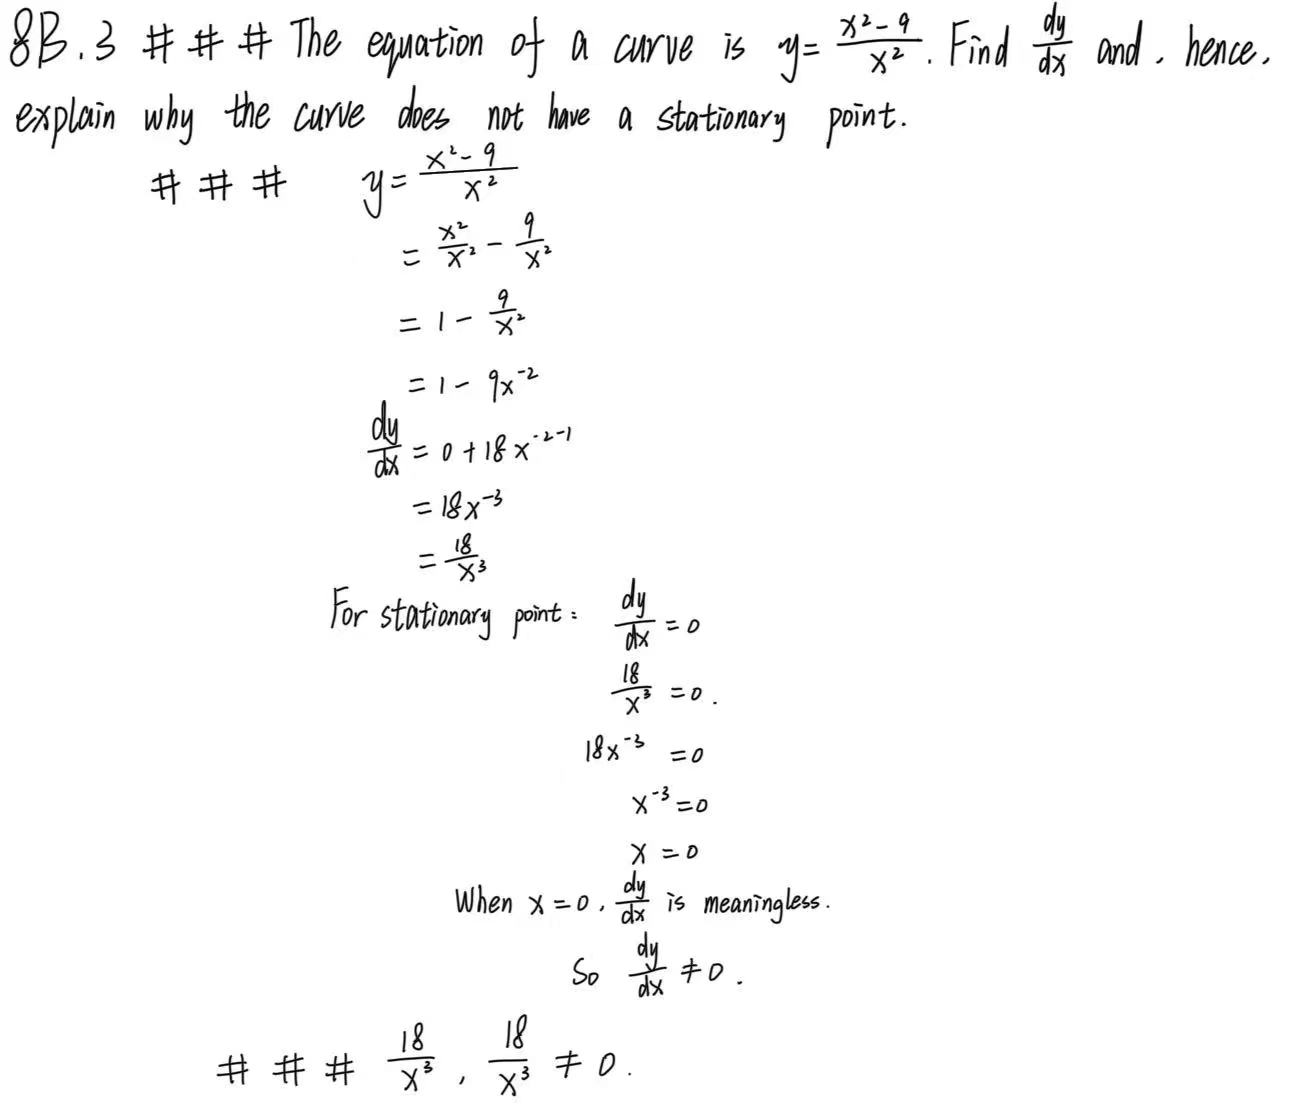 8B.3 # # # The equation of a curve is y = \frac{x^2-9}{x^2}. Find \frac{dy}{dx} and, hence,
explain why the curve does not have a stationary point.
# # # y = \frac{x^2-9}{x^2}
= \frac{x^2}{x^2} - \frac{9}{x^2}
= 1 - \frac{9}{x^2}
= 1 - 9x^{-2}
\frac{dy}{dx} = 0 + 18x^{-2-1}
= 18x^{-3}
= \frac{18}{x^3}
For stationary point: \frac{dy}{dx} = 0
\frac{18}{x^3} = 0.
18x^{-3} = 0
x^{-3} = 0
x = 0
When x = 0, \frac{dy}{dx} is meaningless.
So \frac{dy}{dx} ≠ 0.
# # # \frac{18}{x^3}, \frac{18}{x^3} ≠ 0.